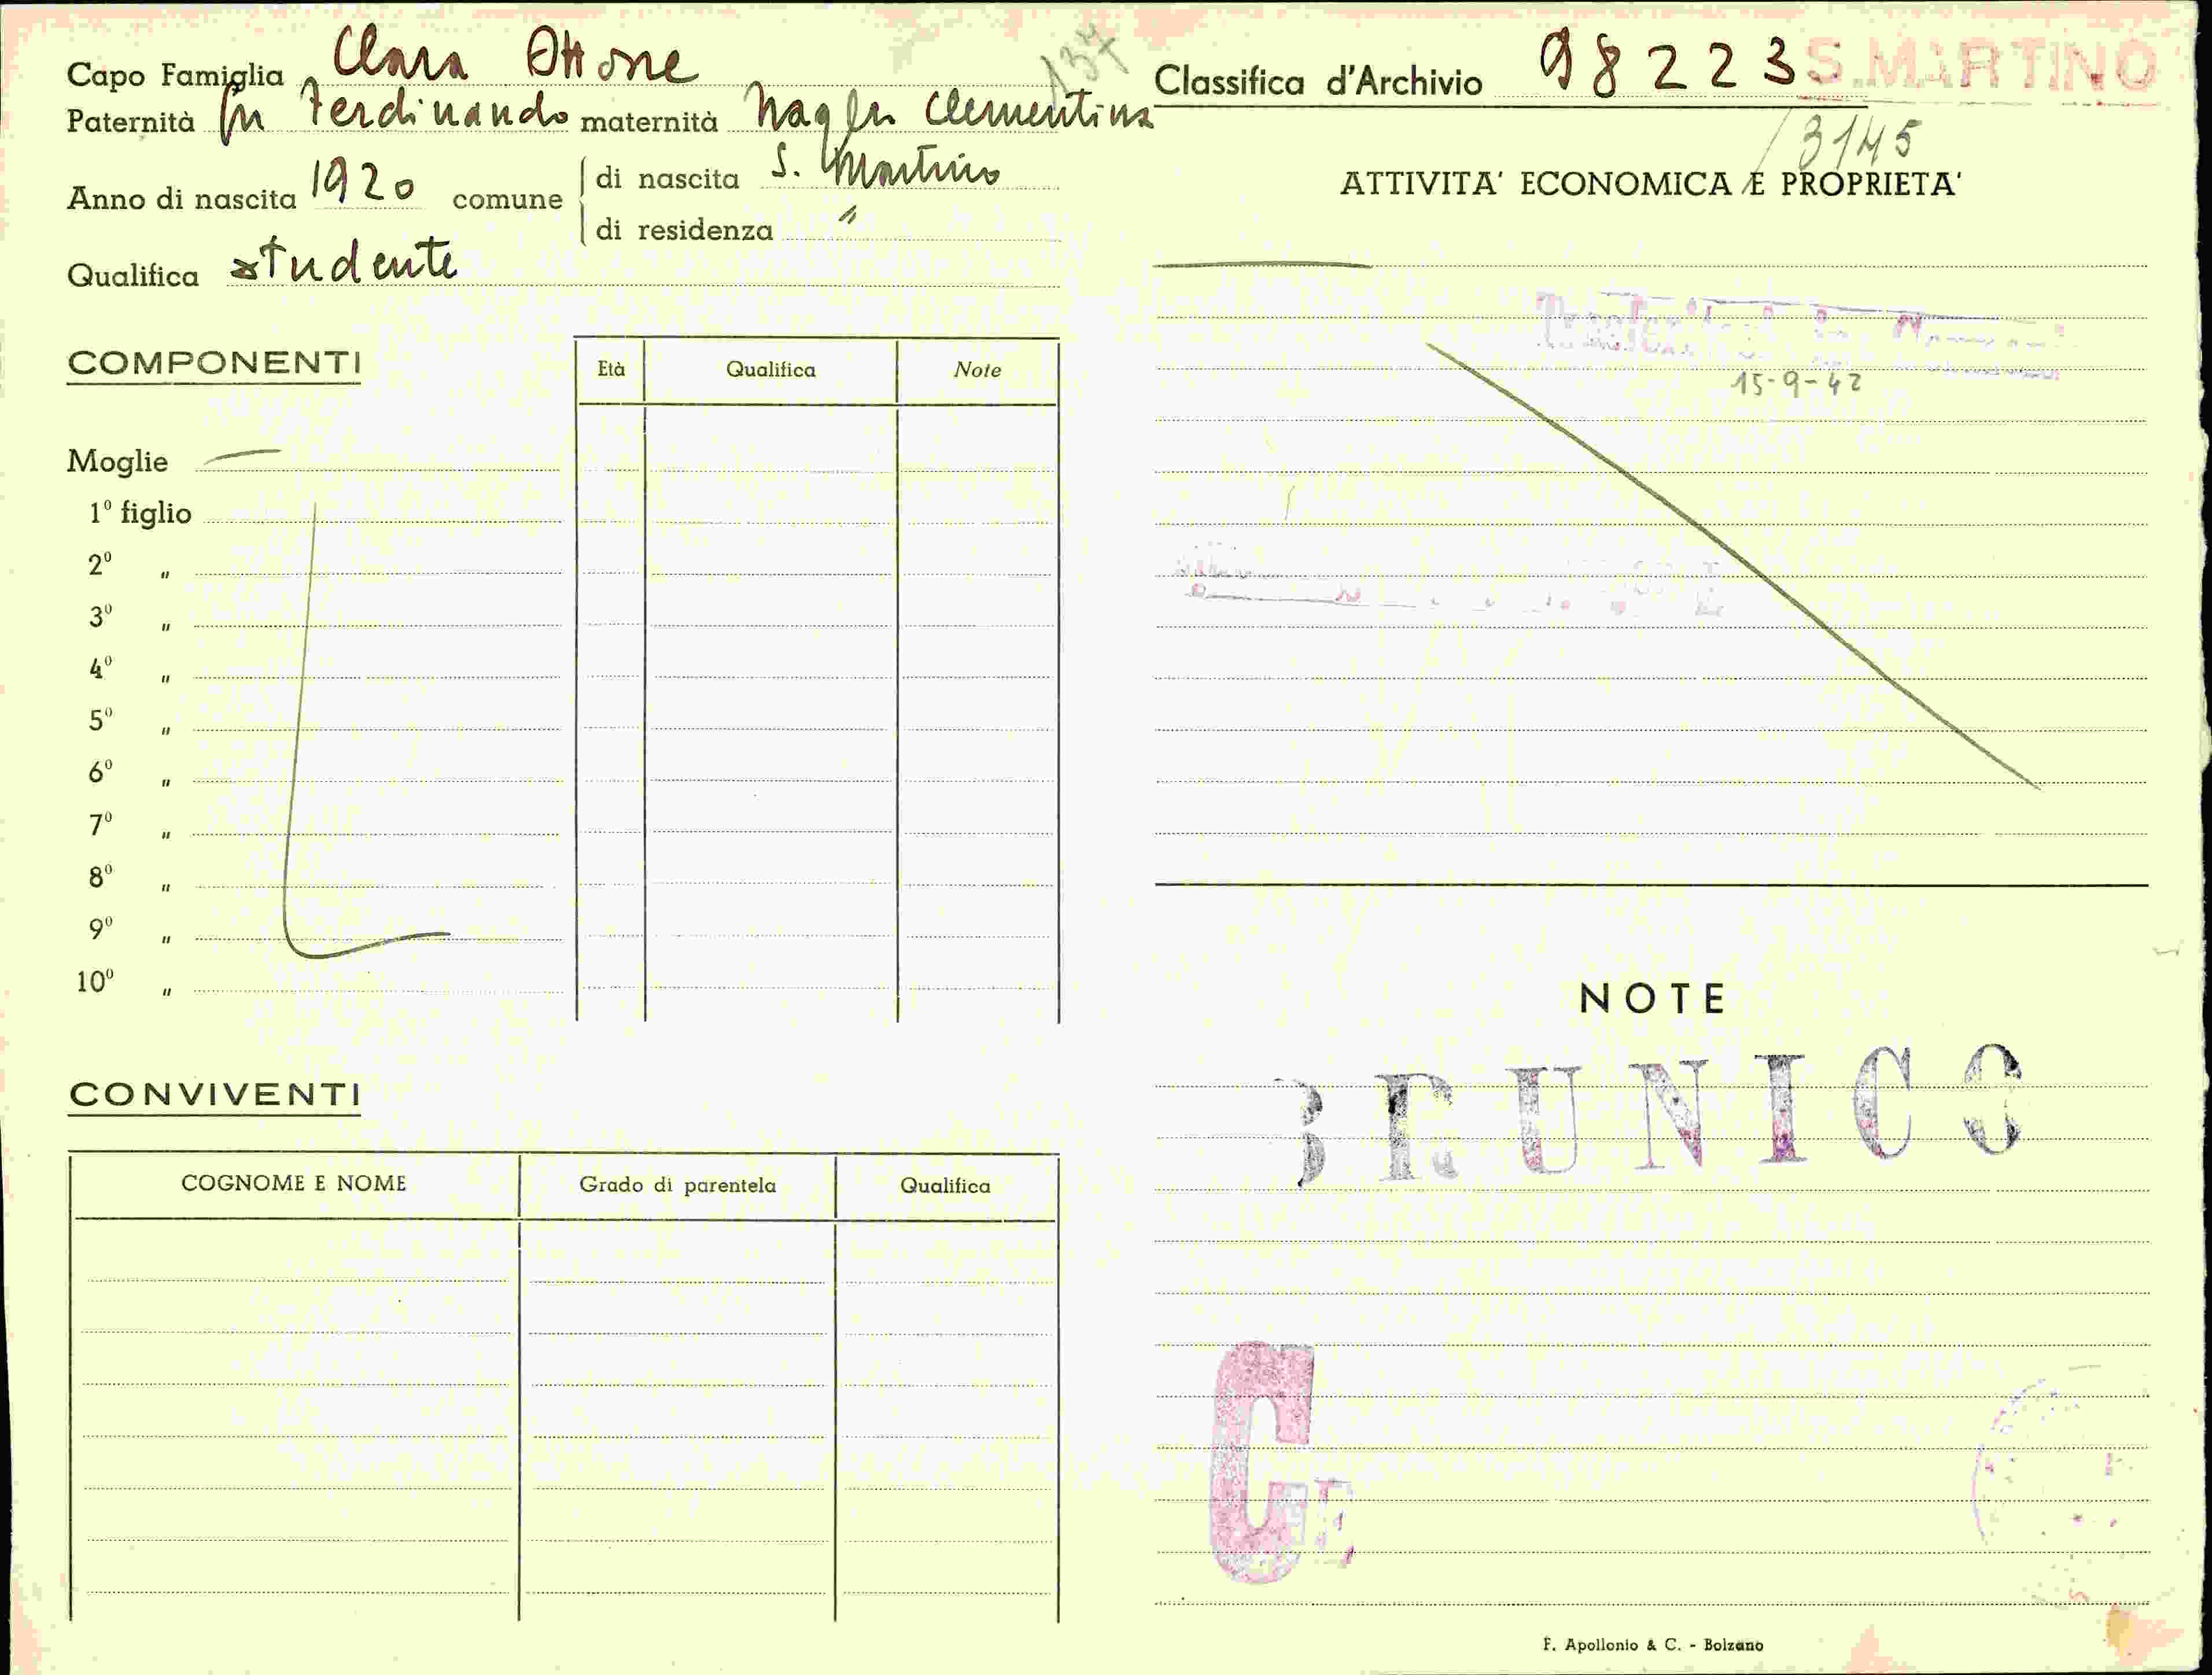 Capo Famiglia Clara Ottone
137
Paternità fu Ferdinando maternità Nagler Clementina
Anno di nascita 1920 comune di nascita S. Martino
di residenza "
Qualifica studente
COMPONENTI
Età Qualifica Note
Moglie
1º figlio
2º "
3º "
4º "
5º "
6º "
7º "
8º "
9º "
10º "
CONVIVENTI
COGNOME E NOME Grado di parentela Qualifica
Classifica d'Archivio 98223 S. MARTINO
3145
ATTIVITA' ECONOMICA E PROPRIETA'
15-9-42
NOTE
BRUNICO
C
F. Apollonio & C. - Bolzano